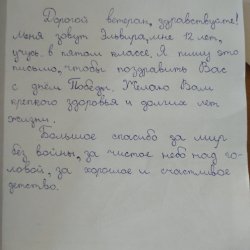 Дорогой ветеран, здравствуйте!
Меня зовут Эльвира, мне 12 лет,
учусь в пятом классе. Я пишу это
письмо, чтобы поздравить Вас
с днём Победы. Желаю Вам
крепкого здоровья и долгих лет
жизни.
Большое спасибо за мир
без войны, за чистое небо над го-
ловой, за хорошое и счастливое
детство.